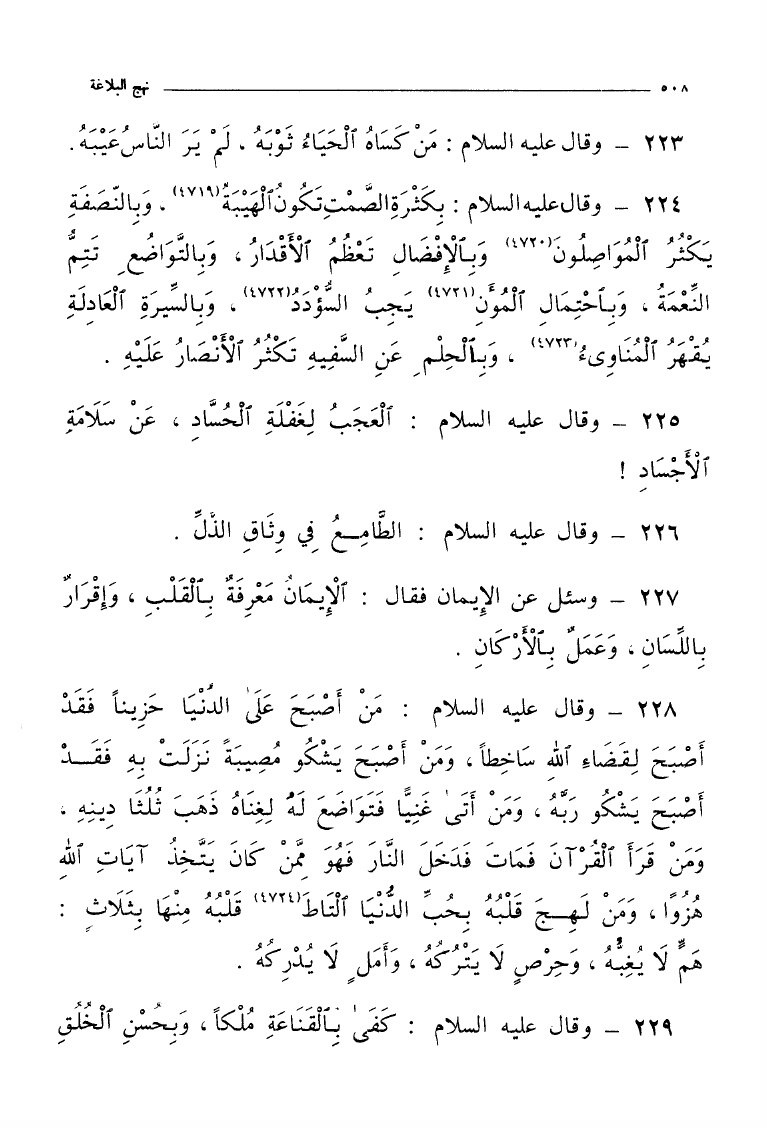 ٥٠٨ نهج البلاغة
٢٢٣ – وقال عليه السلام : مَنْ كَسَاهُ ٱلْحَيَاءُ ثَوْبَهُ ، لَمْ يَرَ النَّاسُ عَيْبَهُ .
٢٢٤ – وقال عليه السلام : بِكَثْرَةِ الصَّمْتِ تَكُونُ ٱلْهَيْبَةُ(٤٧١٩) ، وَبِالنَّصَفَةِ
يَكْثُرُ ٱلْمُوَاصِلُونَ(٤٧٢٠) وَبِٱلْإِفْضَالِ تَعْظُمُ ٱلْأَقْدَارُ ، وَبِالتَّوَاضُعِ تَتِمُّ
النِّعْمَةُ ، وَبِٱحْتِمَالِ ٱلْمُؤَنِ(٤٧٢١) يَجِبُ السُّؤْدَدُ(٤٧٢٢) ، وَبِالسِّيرَةِ ٱلْعَادِلَةِ
يُقْهَرُ ٱلْمُنَاوِىءُ(٤٧٢٣) ، وَبِٱلْحِلْمِ عَنِ السَّفِيهِ تَكْثُرُ ٱلْأَنْصَارُ عَلَيْهِ .
٢٢٥ – وقال عليه السلام : ٱلْعَجَبُ لِغَفْلَةِ ٱلْحُسَّادِ ، عَنْ سَلَامَةِ
ٱلْأَجْسَادِ !
٢٢٦ – وقال عليه السلام : الطَّامِعُ فِي وِثَاقِ الذُّلِّ .
٢٢٧ – وسئل عن الإيمان فقال : ٱلْإِيمَانُ مَعْرِفَةٌ بِٱلْقَلْبِ ، وَإِقْرَارٌ
بِاللِّسَانِ ، وَعَمَلٌ بِٱلْأَرْكَانِ .
٢٢٨ – وقال عليه السلام : مَنْ أَصْبَحَ عَلَىٰ الدُّنْيَا حَزِيناً فَقَدْ
أَصْبَحَ لِقَضَاءِ ٱللهِ سَاخِطاً ، وَمَنْ أَصْبَحَ يَشْكُو مُصِيبَةً نَزَلَتْ بِهِ فَقَدْ
أَصْبَحَ يَشْكُو رَبَّهُ ، وَمَنْ أَتَىٰ غَنِيًّا فَتَوَاضَعَ لَهُ لِغِنَاهُ ذَهَبَ ثُلُثَا دِينِهِ ،
وَمَنْ قَرَأَ ٱلْقُرْآنَ فَمَاتَ فَدَخَلَ النَّارَ فَهُوَ مِمَّنْ كَانَ يَتَّخِذُ آيَاتِ ٱللهِ
هُزُوًا ، وَمَنْ لَهِجَ قَلْبُهُ بِحُبِّ الدُّنْيَا ٱلْتَاطَ(٤٧٢٤) قَلْبُهُ مِنْهَا بِثَلَاثٍ :
هَمٍّ لَا يُغِبُّهُ ، وَحِرْصٍ لَا يَتْرُكُهُ ، وَأَمَلٍ لَا يُدْرِكُهُ .
٢٢٩ – وقال عليه السلام : كَفَىٰ بِٱلْقَنَاعَةِ مُلْكاً ، وَبِحُسْنِ ٱلْخُلُقِ